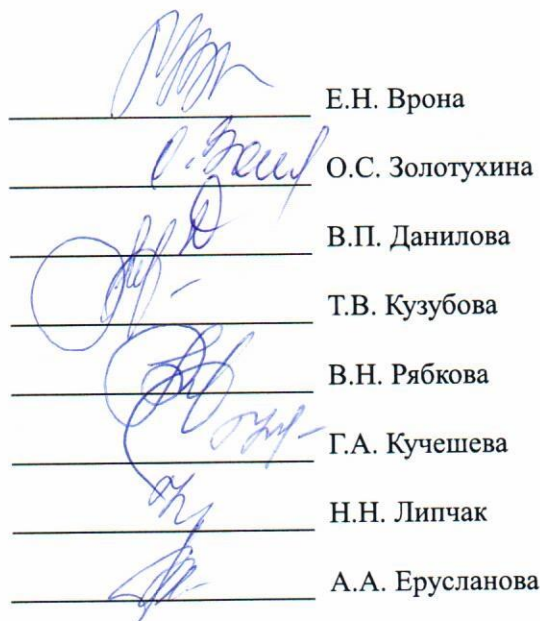 Е.Н. Врона
О.С. Золотухина
В.П. Данилова
Т.В. Кузубова
В.Н. Рябкова
Г.А. Кучешева
Н.Н. Липчак
А.А. Ерусланова